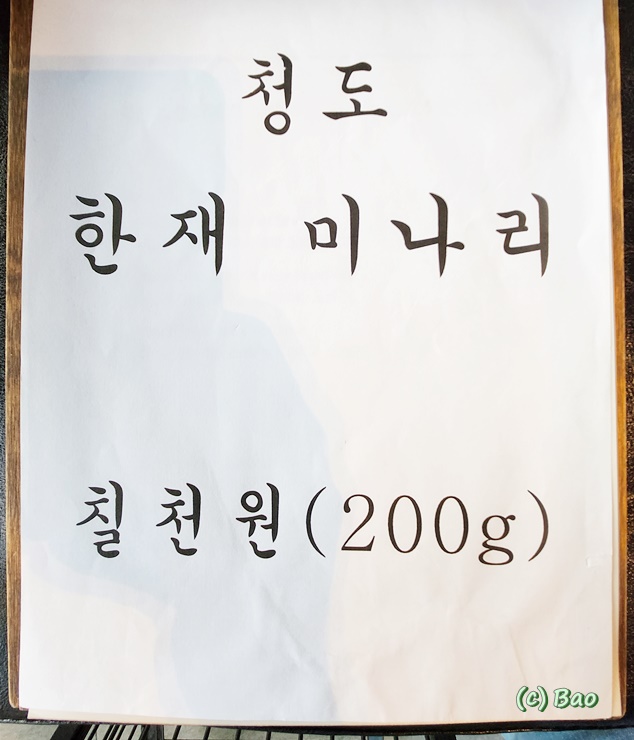 청도
한재 미나리
칠천원(200g)
(c) Bao